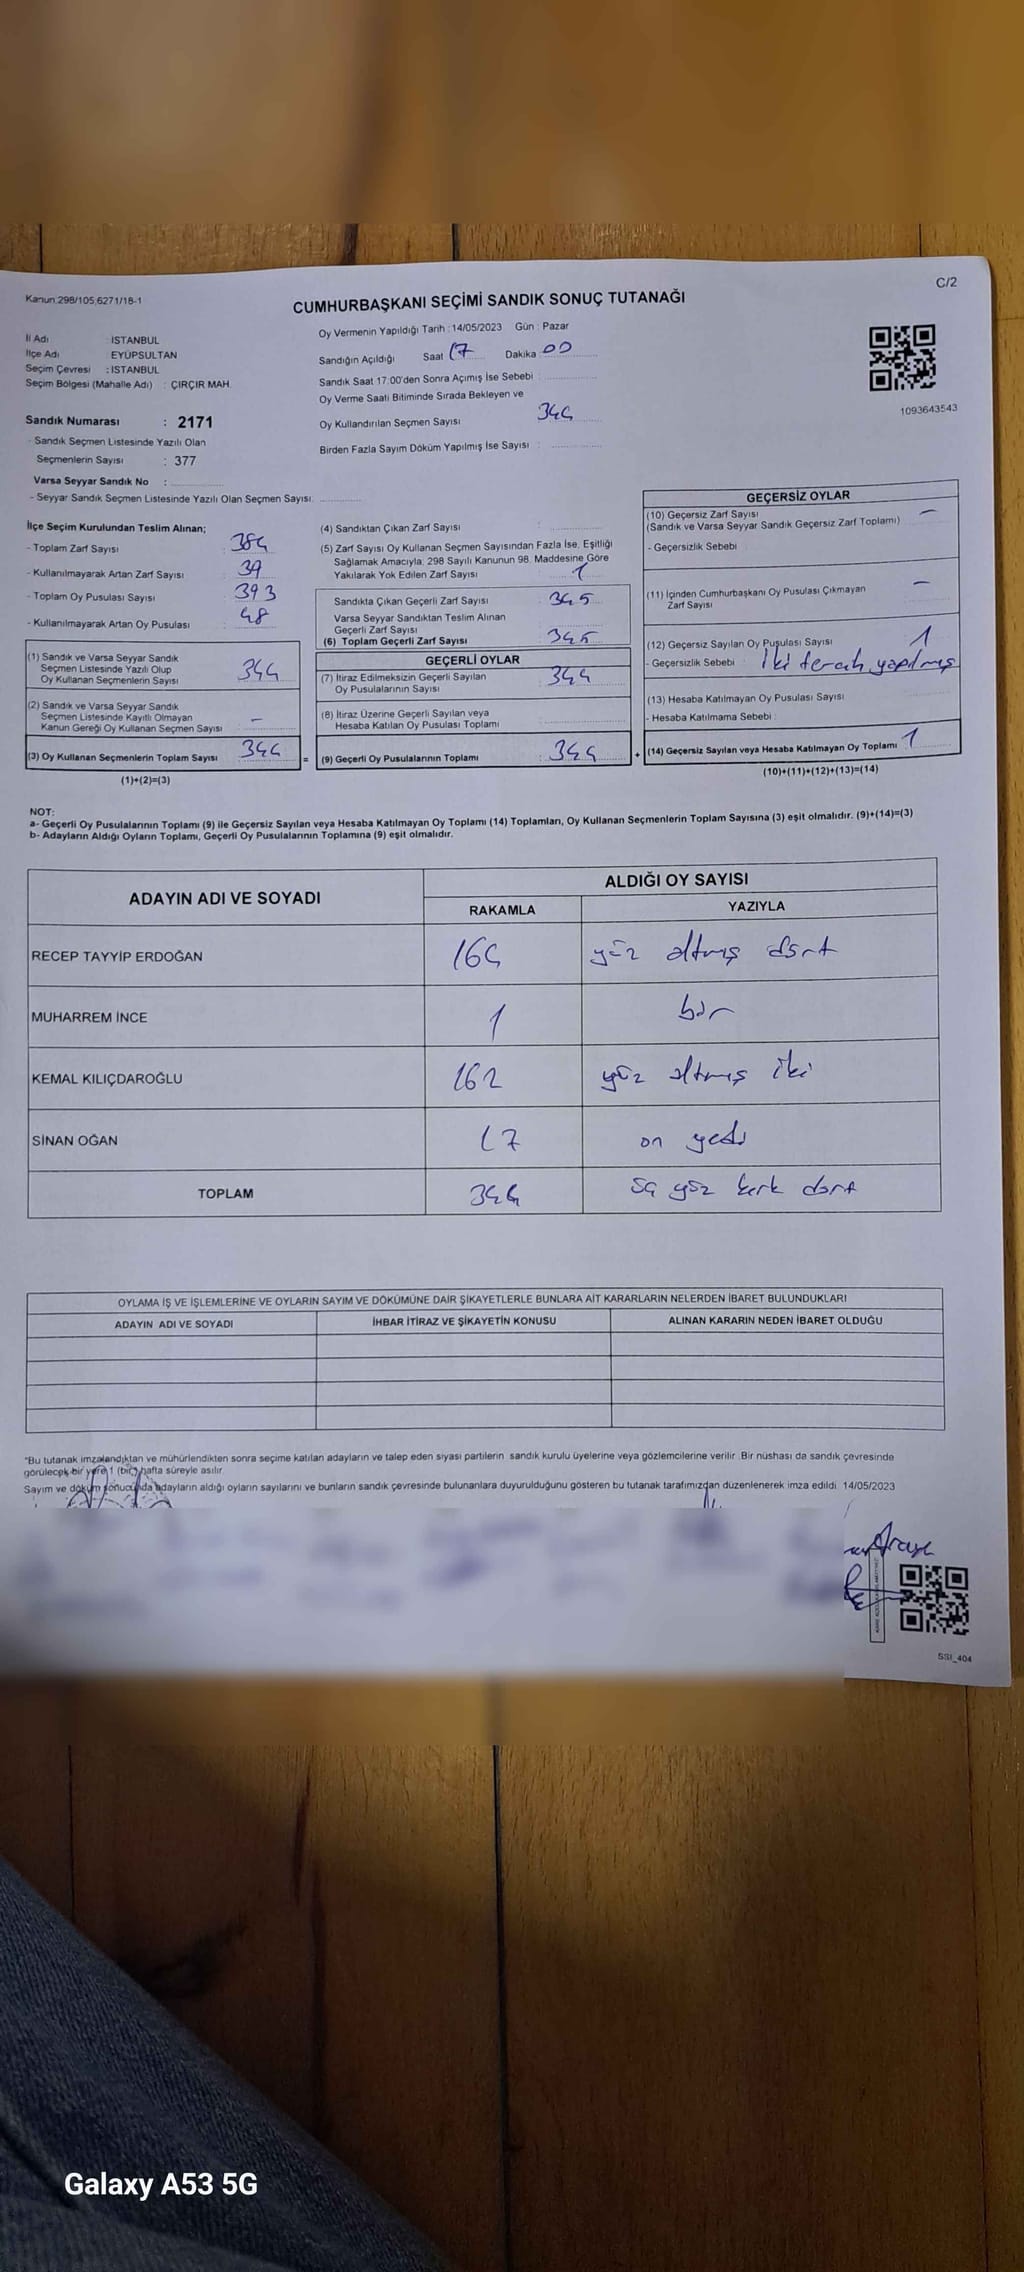 C/2
Kanun:298/105;6271/18-1
CUMHURBAŞKANI SEÇİMİ SANDIK SONUÇ TUTANAĞI
İl Adı : İSTANBUL
İlçe Adı EYÜPSULTAN
Seçim Çevresi : İSTANBUL
Seçim Bölgesi (Mahalle Adı) : ÇIRÇIR MAH.
Sandık Numarası : 2171
- Sandık Seçmen Listesinde Yazılı Olan
Seçmenlerin Sayısı : 377
Varsa Seyyar Sandık No :
- Seyyar Sandık Seçmen Listesinde Yazılı Olan Seçmen Sayısı:
Oy Vermenin Yapıldığı Tarih : 14/05/2023 Gün : Pazar
Sandığın Açıldığı Saat 17 Dakika 00
Sandık Saat 17:00'den Sonra Açımış İse Sebebi :
Oy Verme Saati Bitiminde Sırada Bekleyen ve
Oy Kullandırılan Seçmen Sayısı 344
Birden Fazla Sayım Döküm Yapılmış İse Sayısı :
1093643543
İlçe Seçim Kurulundan Teslim Alınan;
- Toplam Zarf Sayısı : 384
- Kullanılmayarak Artan Zarf Sayısı : 39
- Toplam Oy Pusulası Sayısı : 393
- Kullanılmayarak Artan Oy Pusulası : 48
(1) Sandık ve Varsa Seyyar Sandık
Seçmen Listesinde Yazılı Olup
Oy Kullanan Seçmenlerin Sayısı 344
(2) Sandık ve Varsa Seyyar Sandık
Seçmen Listesinde Kayıtlı Olmayan
Kanun Gereği Oy Kullanan Seçmen Sayısı –
(3) Oy Kullanan Seçmenlerin Toplam Sayısı 344 =
(1)+(2)=(3)
(4) Sandıktan Çıkan Zarf Sayısı :
(5) Zarf Sayısı Oy Kullanan Seçmen Sayısından Fazla İse, Eşitliği
Sağlamak Amacıyla, 298 Sayılı Kanunun 98. Maddesine Göre
Yakılarak Yok Edilen Zarf Sayısı 1
Sandıkta Çıkan Geçerli Zarf Sayısı : 345
Varsa Seyyar Sandıktan Teslim Alınan
Geçerli Zarf Sayısı
(6) Toplam Geçerli Zarf Sayısı 345
GEÇERLİ OYLAR
(7) İtiraz Edilmeksizin Geçerli Sayılan
Oy Pusulalarının Sayısı 344
(8) İtiraz Üzerine Geçerli Sayılan veya
Hesaba Katılan Oy Pusulası Toplamı :
(9) Geçerli Oy Pusulalarının Toplamı : 344 +
GEÇERSİZ OYLAR
(10) Geçersiz Zarf Sayısı –
(Sandık ve Varsa Seyyar Sandık Geçersiz Zarf Toplamı)
- Geçersizlik Sebebi
(11) İçinden Cumhurbaşkanı Oy Pusulası Çıkmayan –
Zarf Sayısı
(12) Geçersiz Sayılan Oy Pusulası Sayısı 1
- Geçersizlik Sebebi iki tercih yapılmış
(13) Hesaba Katılmayan Oy Pusulası Sayısı
- Hesaba Katılmama Sebebi :
(14) Geçersiz Sayılan veya Hesaba Katılmayan Oy Toplamı 1
(10)+(11)+(12)+(13)=(14)
NOT:
a- Geçerli Oy Pusulalarının Toplamı (9) ile Geçersiz Sayılan veya Hesaba Katılmayan Oy Toplamı (14) Toplamları, Oy Kullanan Seçmenlerin Toplam Sayısına (3) eşit olmalıdır. (9)+(14)=(3)
b- Adayların Aldığı Oyların Toplamı, Geçerli Oy Pusulalarının Toplamına (9) eşit olmalıdır.
ADAYIN ADI VE SOYADI ALDIĞI OY SAYISI
RAKAMLA YAZIYLA
RECEP TAYYİP ERDOĞAN 164 yüz altmış dört
MUHARREM İNCE 1 bir
KEMAL KILIÇDAROĞLU 162 yüz altmış iki
SİNAN OĞAN 17 on yedi
TOPLAM 344 üç yüz kırk dört
OYLAMA İŞ VE İŞLEMLERİNE VE OYLARIN SAYIM VE DÖKÜMÜNE DAİR ŞİKAYETLERLE BUNLARA AİT KARARLARIN NELERDEN İBARET BULUNDUKLARI
ADAYIN ADI VE SOYADI İHBAR İTİRAZ VE ŞİKAYETİN KONUSU ALINAN KARARIN NEDEN İBARET OLDUĞU
"Bu tutanak imzalandıktan ve mühürlendikten sonra seçime katılan adayların ve talep eden siyasi partilerin sandık kurulu üyelerine veya gözlemcilerine verilir. Bir nüshası da sandık çevresinde
görülecek bir yere 1 (bir) hafta süreyle asılır.
Sayım ve döküm sonucunda adayların aldığı oyların sayılarını ve bunların sandık çevresinde bulunanlara duyurulduğunu gösteren bu tutanak tarafımızdan düzenlenerek imza edildi. 14/05/2023
SSI_404
Galaxy A53 5G